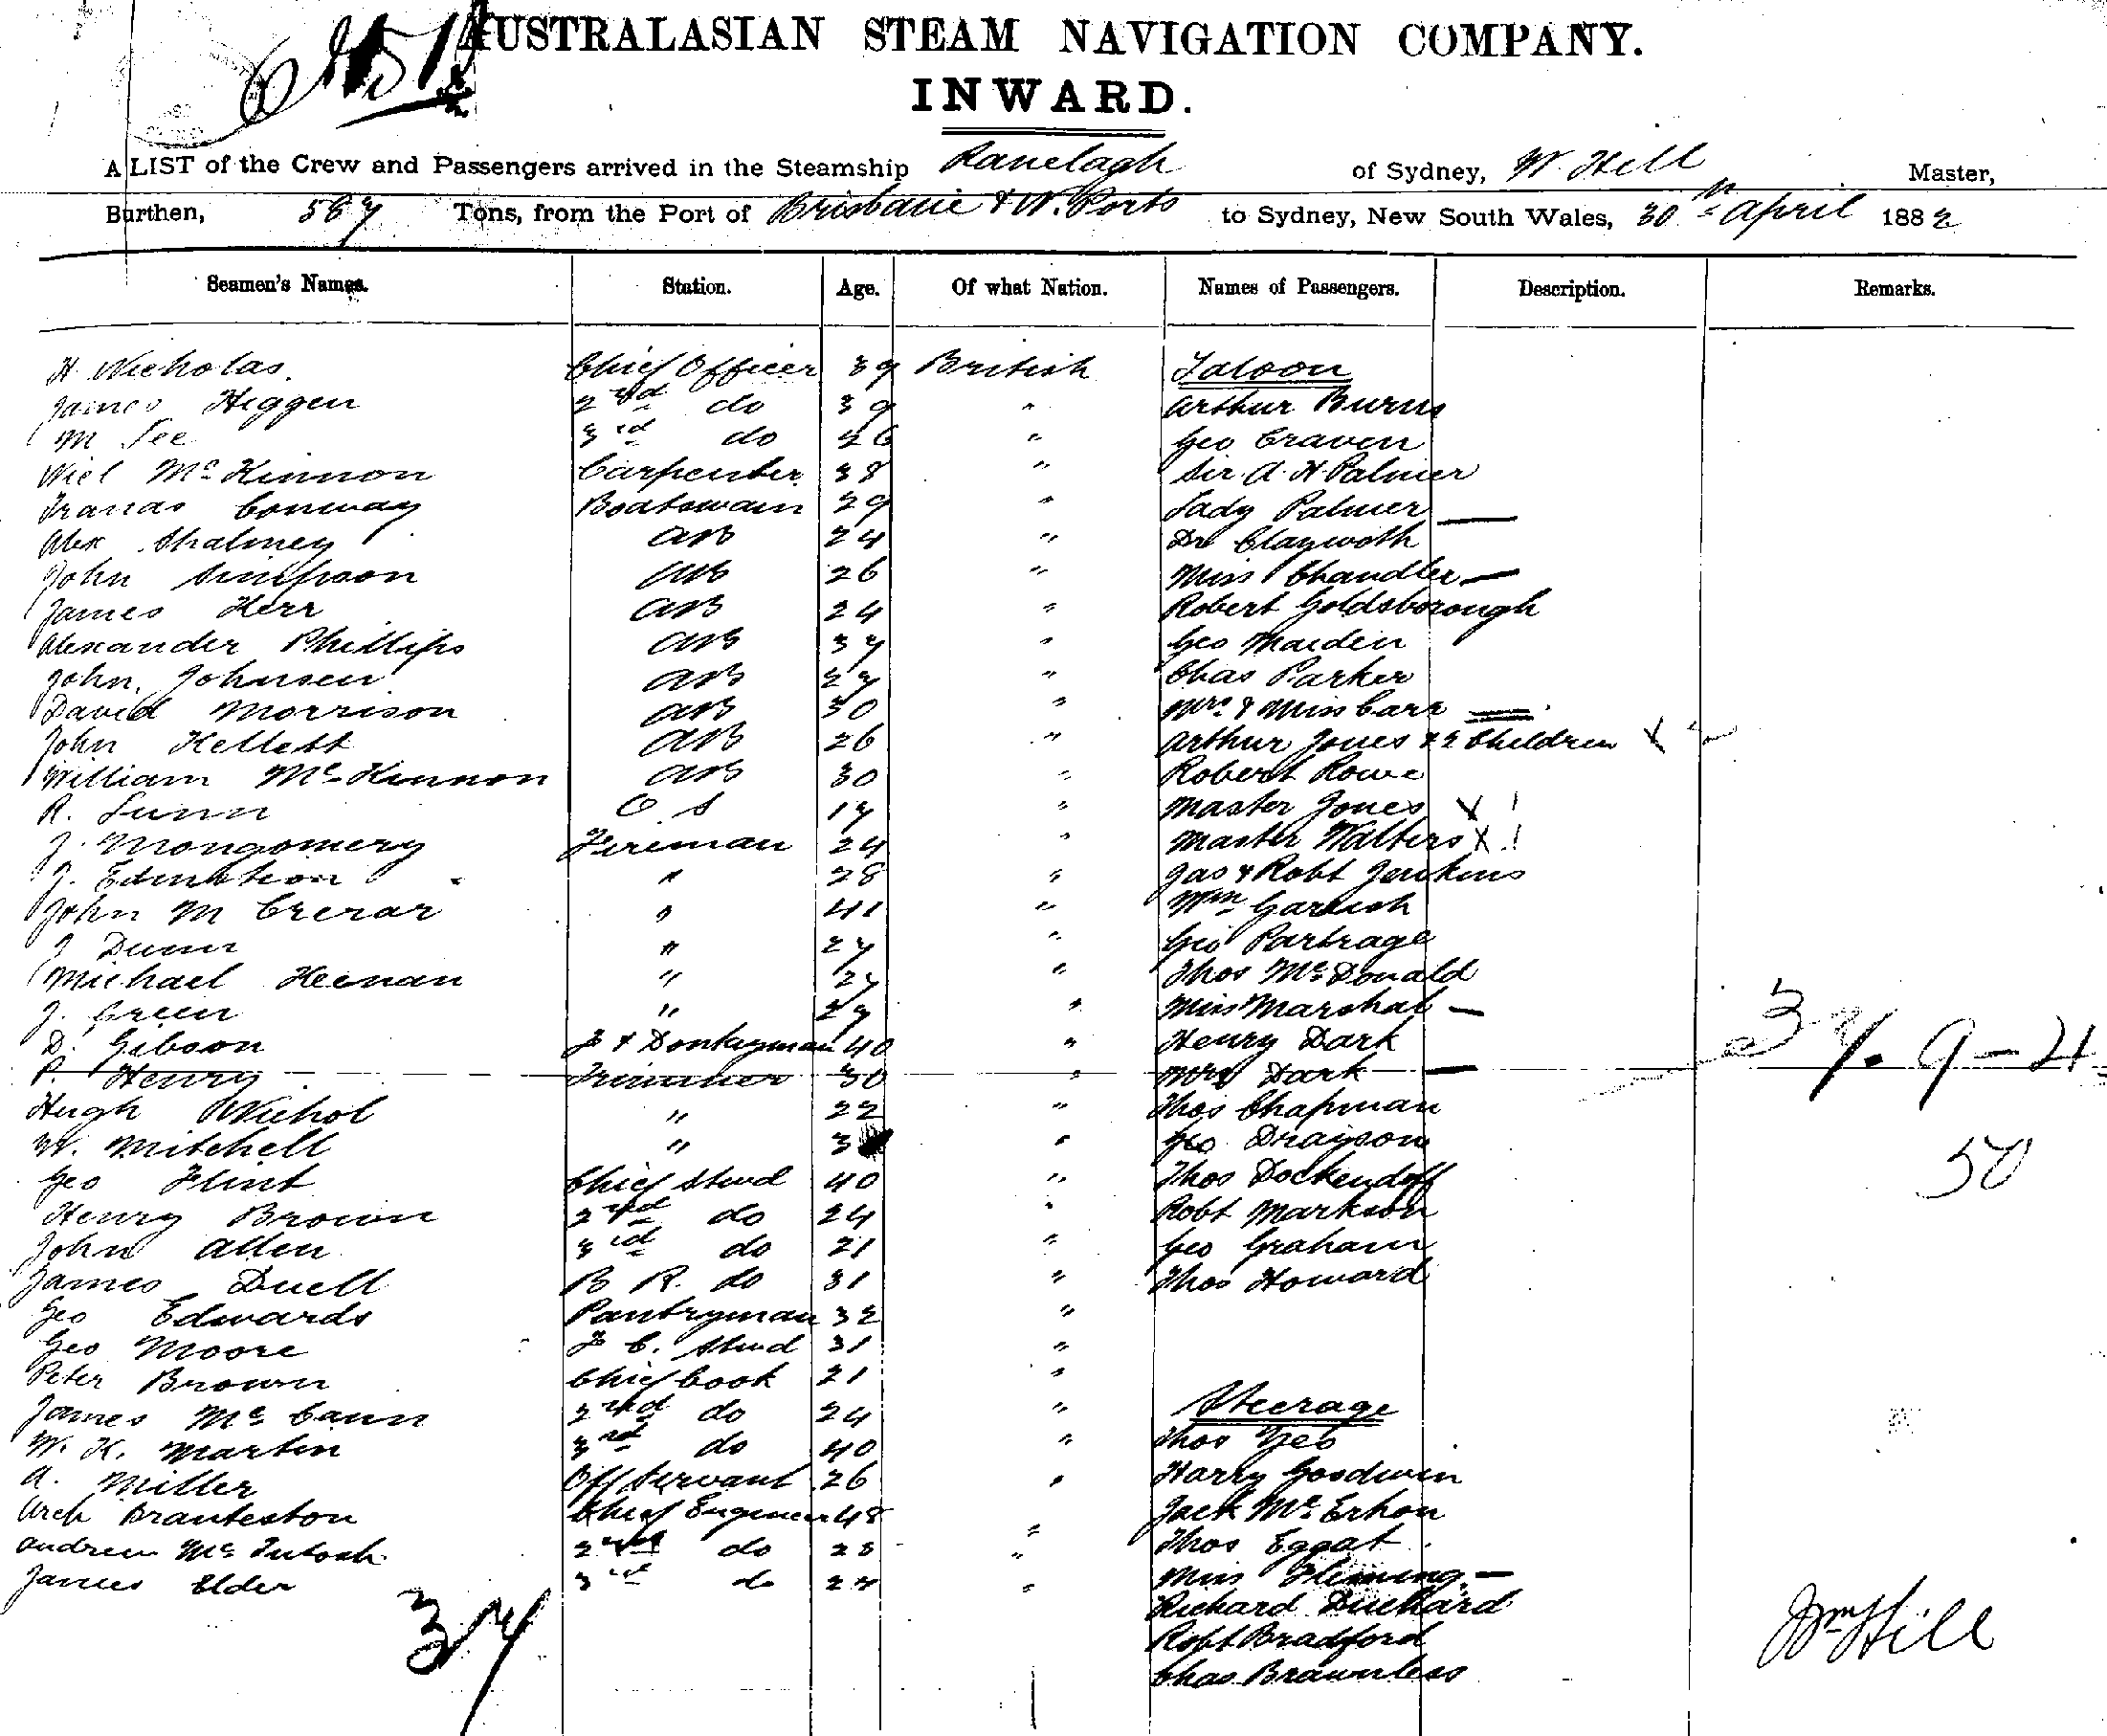 AUSTRALASIAN STEAM NAVIGATION COMPANY.
INWARD.
A LIST of the Crew and Passengers arrived in the Steamship Ranelagh of Sydney, W. Hill Master,
Burthen, 587 Tons, from the Port of Brisbane & W. Ports to Sydney, New South Wales, 30th April 1882
Seamen's Names. Station. Age. Of what Nation. Names of Passengers. Description. Remarks.
H Nicholas. Chief Officer 39 British Saloon
James Higgen 2nd do 39 " Arthur Burns
M Lee 3rd do 26 " Geo Craven
Niel McKinnon Carpenter 38 " Sir A. H. Palmer
Francis Conway Boatswain 29 " Lady Palmer —
Alex Shalmey AB 24 " Dr Clayworth
John Simpson AB 26 " Miss Chandler —
James Kerr AB 24 " Robert Goldsborough
Alexander Phillips AB 37 " Geo Maiden
John Johnsen AB 27 " Chas Parker
David Morrison AB 30 " Mrs & Miss Carr =
John Kellett AB 26 " Arthur Jones & 2 Children X 2
William McKinnon AB 30 " Robert Rowe
R. Lunn O S 17 " Master Jones X 1
J. Mongomery Fireman 24 " Master Walters X 1
J. " 28 " Jas & Robt Jenkins
John M Crerar " 41 " Wm Garrish
J Dunn " 27 " Geo Partrage
Michael Heenan " 27 " Thos McDonald
J. Green " 27 " Miss Marshal —
D. Gibson F & Donkeyman 40 " Henry Dark
P. Henry Trimmer 30 " Mrs Dark —
Hugh Nichol " 22 " Thos Chapman
W. Mitchell " 3 " Geo Drayson
Geo Flint Chief Stwd 40 " Thos Dockendoff
Henry Brown 2nd do 24 " Robt Markson
John Allen 3rd do 21 " Geo Graham
James Duell B R. do 31 " Thos Howard
Geo Edwards Pantryman 32 "
Geo Moore F C. Stwd 31 "
Peter Brown Chief Cook 21 "
James McCann 2nd do 24 " Steerage
W. K. Martin 3rd do 40 " Thos Geo
A. Miller Off Servant 26 " Harry Goodwin
Arch Branteston Chief Engineer 48 Jack McErhon
Andrew McIntosh 2nd do 28 " Thos Eggat
James Elder 3rd do 24 " Miss Fleming —
37
Richard Duchard
Robt Bradford
Chas Brawnless
37. 9 - 4
50
Wm Hill